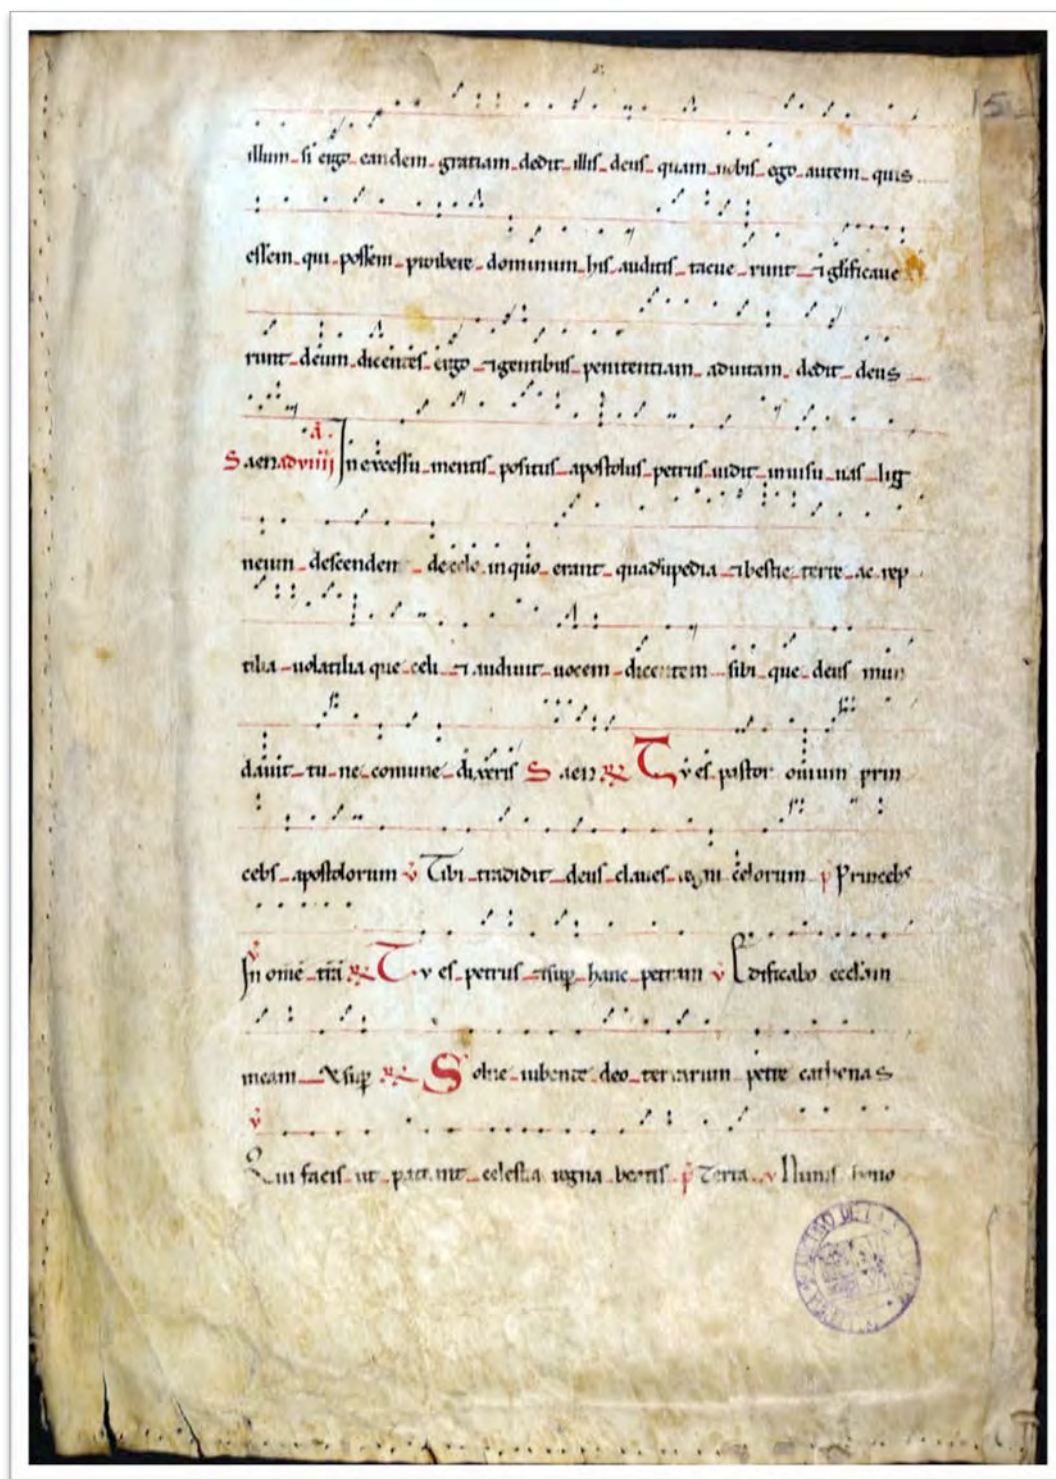 illum si ergo eandem gratiam dedit illis deus quam nobis ego autem quis
essem qui possem prohibere dominum his auditis tacue runt ⁊ glificaue
runt deum dicentes ergo ⁊ gentibus penitentiam aduitam dedit deus
Saen adviiij In excessu mentis positus apostolus petrus uidit inuisu uas lig
neum descenden de celo inquo erant quadrupedia ⁊ bestie terre ac rep
tilia uolatilia que celi ⁊ audiuit uocem dicentem sibi que deus mun
dauit tu ne comune dixeris Saen Tu es pastor ouium prin
cebs apostolorum v Tibi tradidit deus claues regni celorum p Princebs
v
In omē trā Tu es petrus ⁊ sup hanc petram v Edificabo ecclam
meam Et sup Solue iubente deo terrarum petre cathenas
v
Qui facis ut patent celestia regna beatis p Terra v